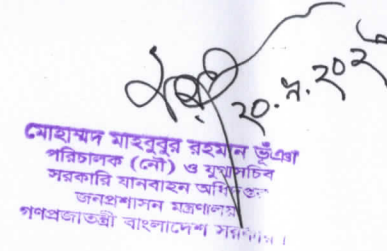 ২০.৯.২০২৬
মোহাম্মদ মাহবুবুর রহমান ভূঁঞা
পরিচালক (নৌ) ও যুগ্মসচিব
সরকারি যানবাহন অধিদপ্তর
জনপ্রশাসন মন্ত্রণালয়
গণপ্রজাতন্ত্রী বাংলাদেশ সরকার।